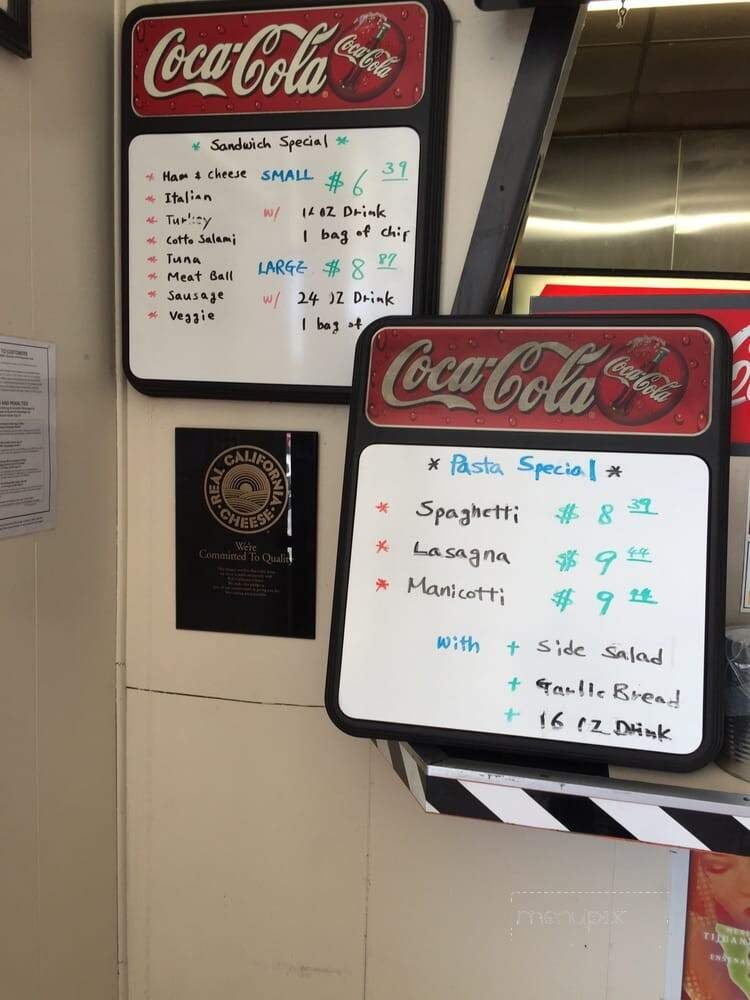 Coca-Cola
Coca-Cola
* Sandwich Special *
* Ham & Cheese SMALL $6 39
* Italian
* Turkey w/ 16 OZ Drink
* Cotto Salami 1 bag of chip
* Tuna
* Meat Ball LARGE $8 87
* Sausage w/ 24 OZ Drink
* Veggie 1 bag of
Coca-Cola
Coca-Cola
* Pasta Special *
* Spaghetti $8 39
* Lasagna $9 44
* Manicotti $9
with + Side Salad
+ Garlic Bread
+ 16 OZ Drink
REAL CALIFORNIA
CHEESE
We're
Committed To Quality
TO CUSTOMERS
AND PENALTIES
menupix
TIJUAN
ENSENA